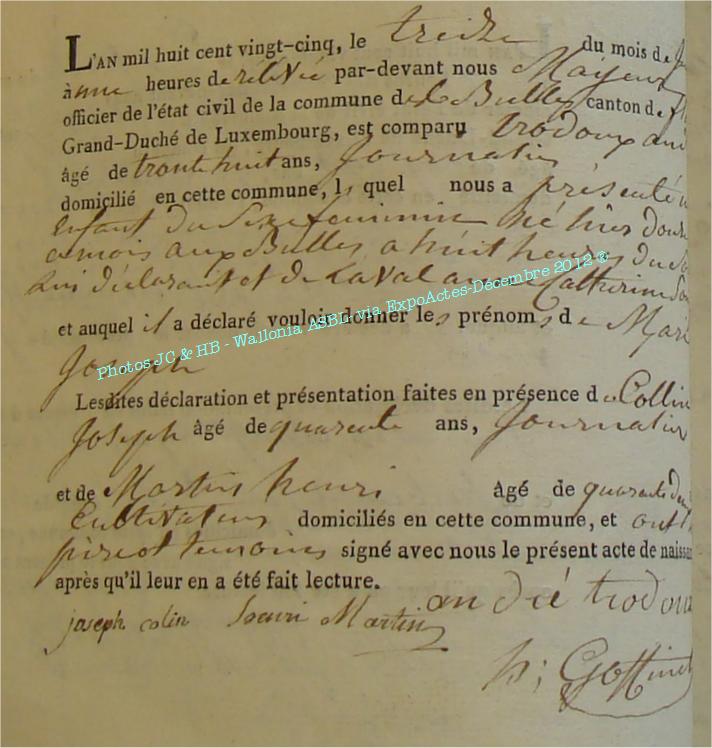 L'AN mil huit cent vingt-cinq, le treize du mois de
à une heures de rélévée par-devant nous Mayeur
officier de l'état civil de la commune de Bulles canton de
Grand-Duché de Luxembourg, est comparu trodoux
âgé de trente huit ans, Journalier
domicilié en cette commune, lequel nous a présenté
Enfant du Sexe feminin né hier douze
aux Bulles a huit heures du
déclarant et de Laval Catherine
et auquel il a déclaré vouloir donner les prénoms de Mari
Joseph
Photos JC & HB - Wallonia ASBL via ExpoActes-Décembre 2012 ®
Lesdites déclaration et présentation faites en présence de Collin
Joseph âgé de quarente ans, Journalier
et de Martin henri âgé de quarente
Cultivateur domiciliés en cette commune, et ont
père et temoins signé avec nous le présent acte de naissan
après qu'il leur en a été fait lecture.
an dré trodoux
joseph colin henri Martin
h; Goffinet